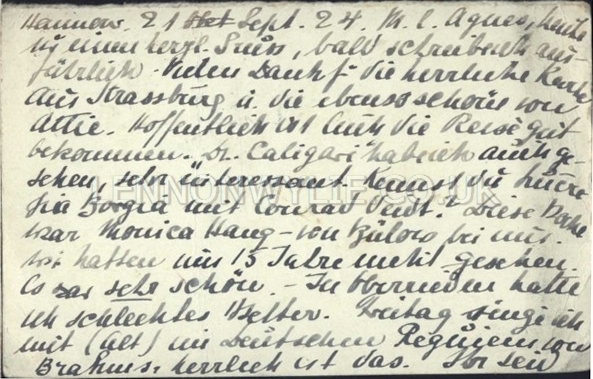 Hannover. 21 Sept. 24. M. l. Agnes, heute
nur einen herzl. Gruss, bald schreibe ich aus-
führlich. Vielen Dank f. die herrliche Karte
aus Strassburg u. die ebenso schöne von
Attie. Hoffentlich ist Euch die Reise gut
bekommen. „Dr. Caligari" habe ich auch ge-
sehen, sehr interessant. Kennst du Lucre-
zia Borgia mit Conrad Veidt? Diese Woche
war Monica Haug - von Bülow bei uns.
wir hatten uns 15 Jahre nicht gesehen.
Es war sehr schön. - In hatte
ich schlechtes Wetter. Freitag singe ich
mit (Alt) im Deutschen Requiem von
Brahms. herrlich ist das.
LENNONWYLIE.CO.UK